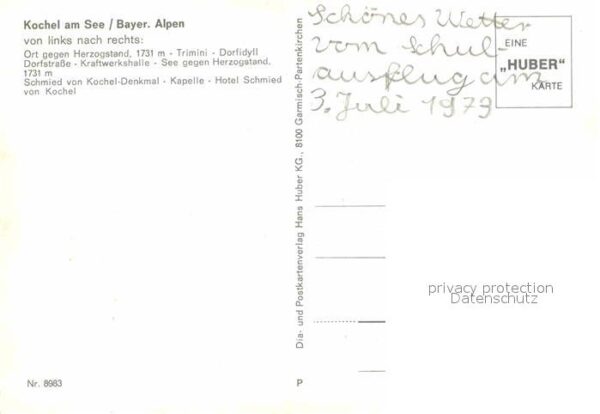 Kochel am See / Bayer. Alpen
von links nach rechts:
Ort gegen Herzogstand, 1731 m - Trimini - Dorfidyll
Dorfstraße - Kraftwerkshalle - See gegen Herzogstand,
1731 m
Schmied von Kochel-Denkmal - Kapelle - Hotel Schmied
von Kochel
Schönes Wetter
vom Schul-
ausflug am
3. Juli 1979
EINE
„HUBER"
KARTE
Dia- und Postkartenverlag Hans Huber KG., 8100 Garmisch-Partenkirchen
privacy protection
Datenschutz
Nr. 8983
P